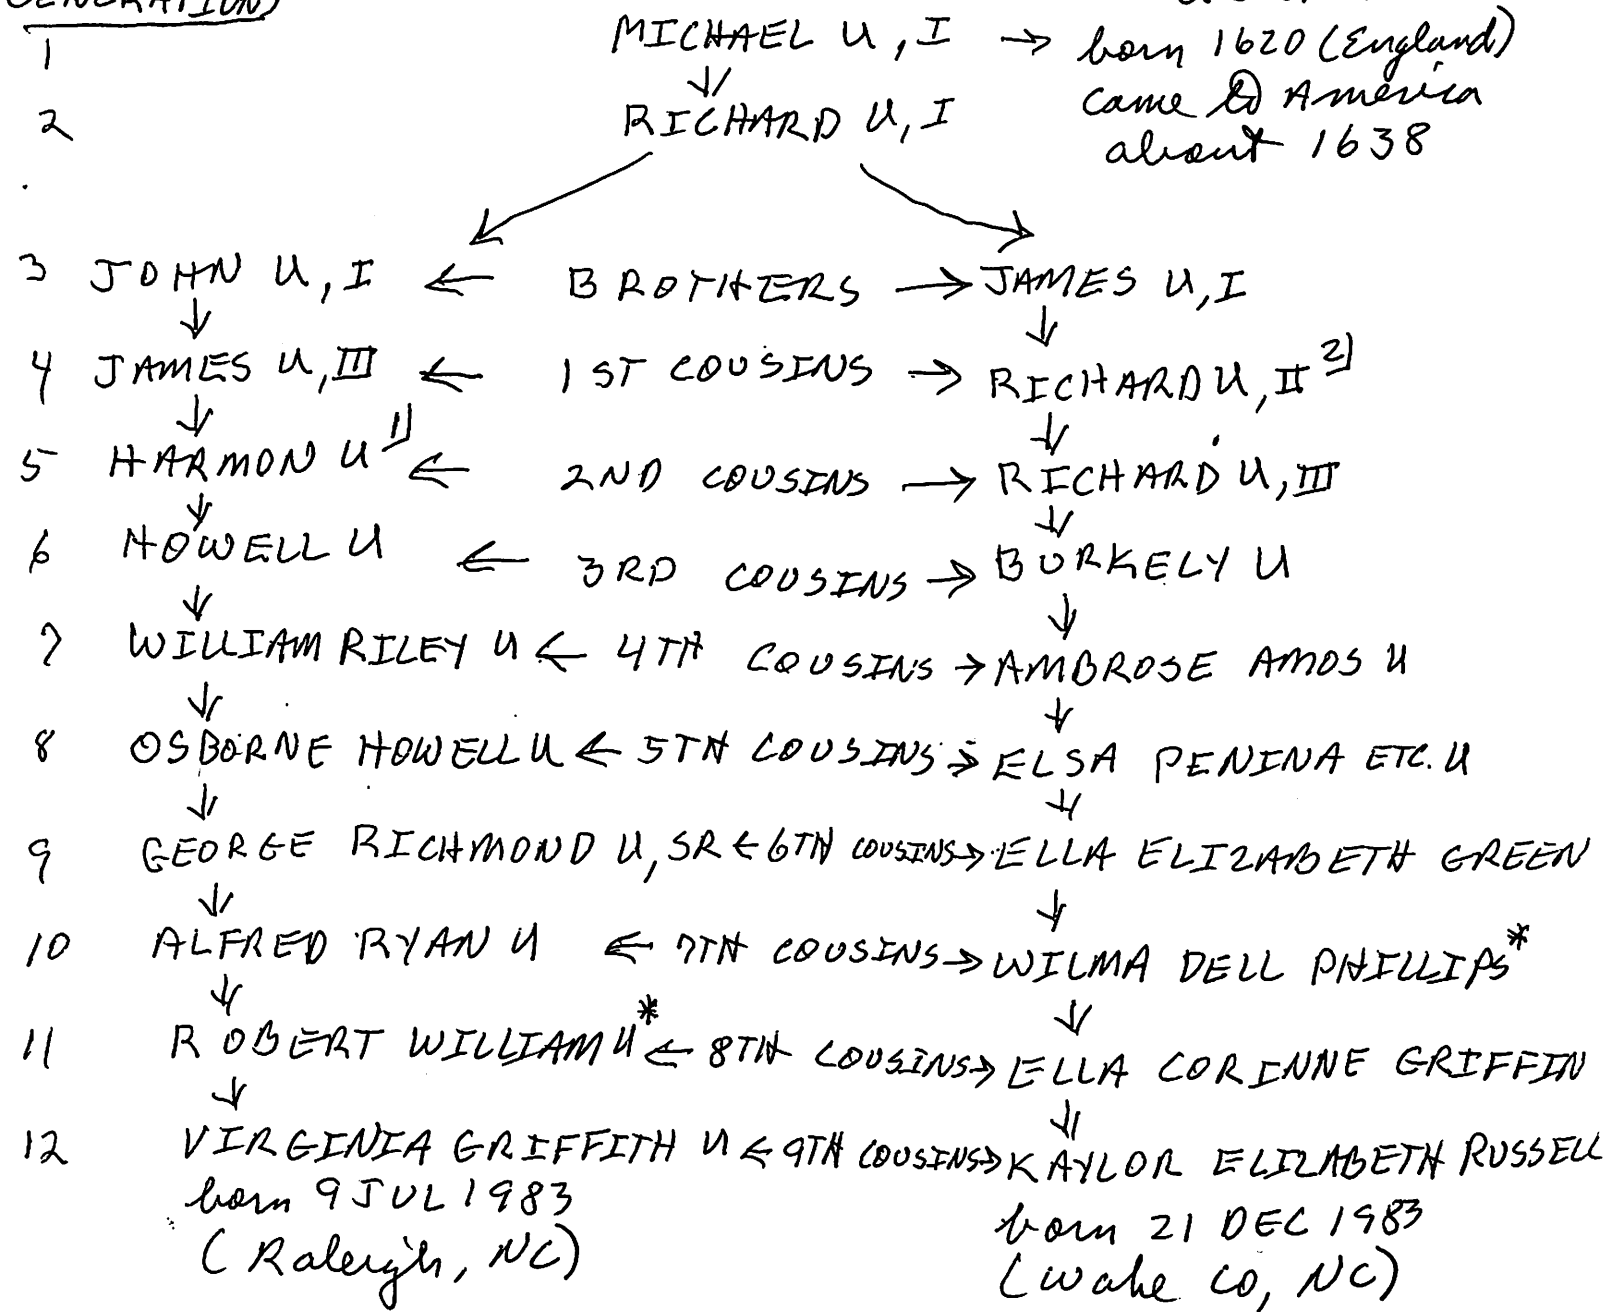 GENERATION)
1 MICHAEL U, I → born 1620 (England)
came to America
2 RICHARD U, I
about 1638
3 JOHN U, I ← BROTHERS → JAMES U, I
4 JAMES U, III ← 1ST COUSINS → RICHARD U, II 2)
5 HARMON U 1) ← 2ND COUSINS → RICHARD U, III
6 HOWELL U ← 3RD COUSINS → BURKELY U
7 WILLIAM RILEY U ← 4TH COUSINS → AMBROSE AMOS U
8 OSBORNE HOWELL U ← 5TH COUSINS → ELSA PENINA ETC. U
9 GEORGE RICHMOND U, SR ← 6TH COUSINS → ELLA ELIZABETH GREEN
10 ALFRED RYAN U ← 7TH COUSINS → WILMA DELL PHILLIPS*
11 ROBERT WILLIAM U* ← 8TH COUSINS → ELLA CORINNE GRIFFIN
12 VIRGINIA GRIFFITH U ← 9TH COUSINS → KAYLOR ELIZABETH RUSSELL
born 9 JUL 1983
(Raleigh, NC)
born 21 DEC 1983
(Wake Co, NC)